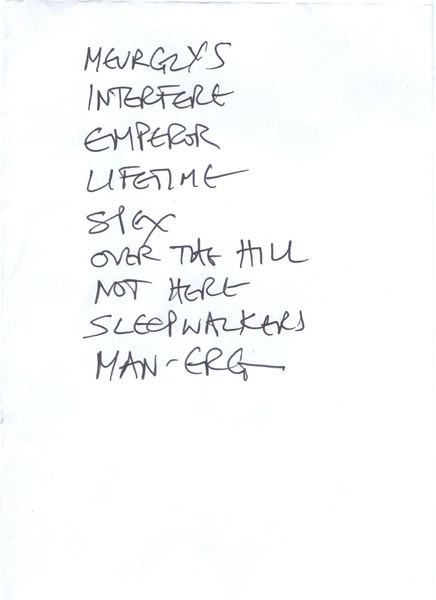 MEURGLYS
INTERFERE
EMPEROR
LIFETIME
OVER THE HILL
NOT HERE
SLEEPWALKERS
MAN-ERG